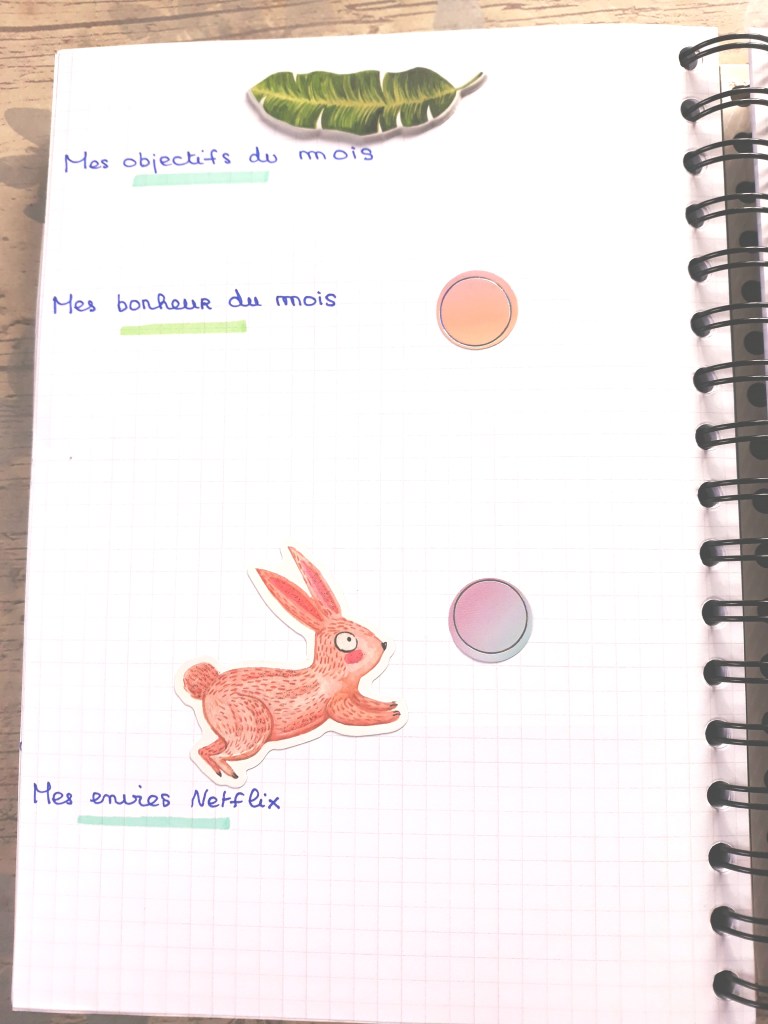 Mes objectifs du mois
Mes bonheur du mois
Mes envies Netflix